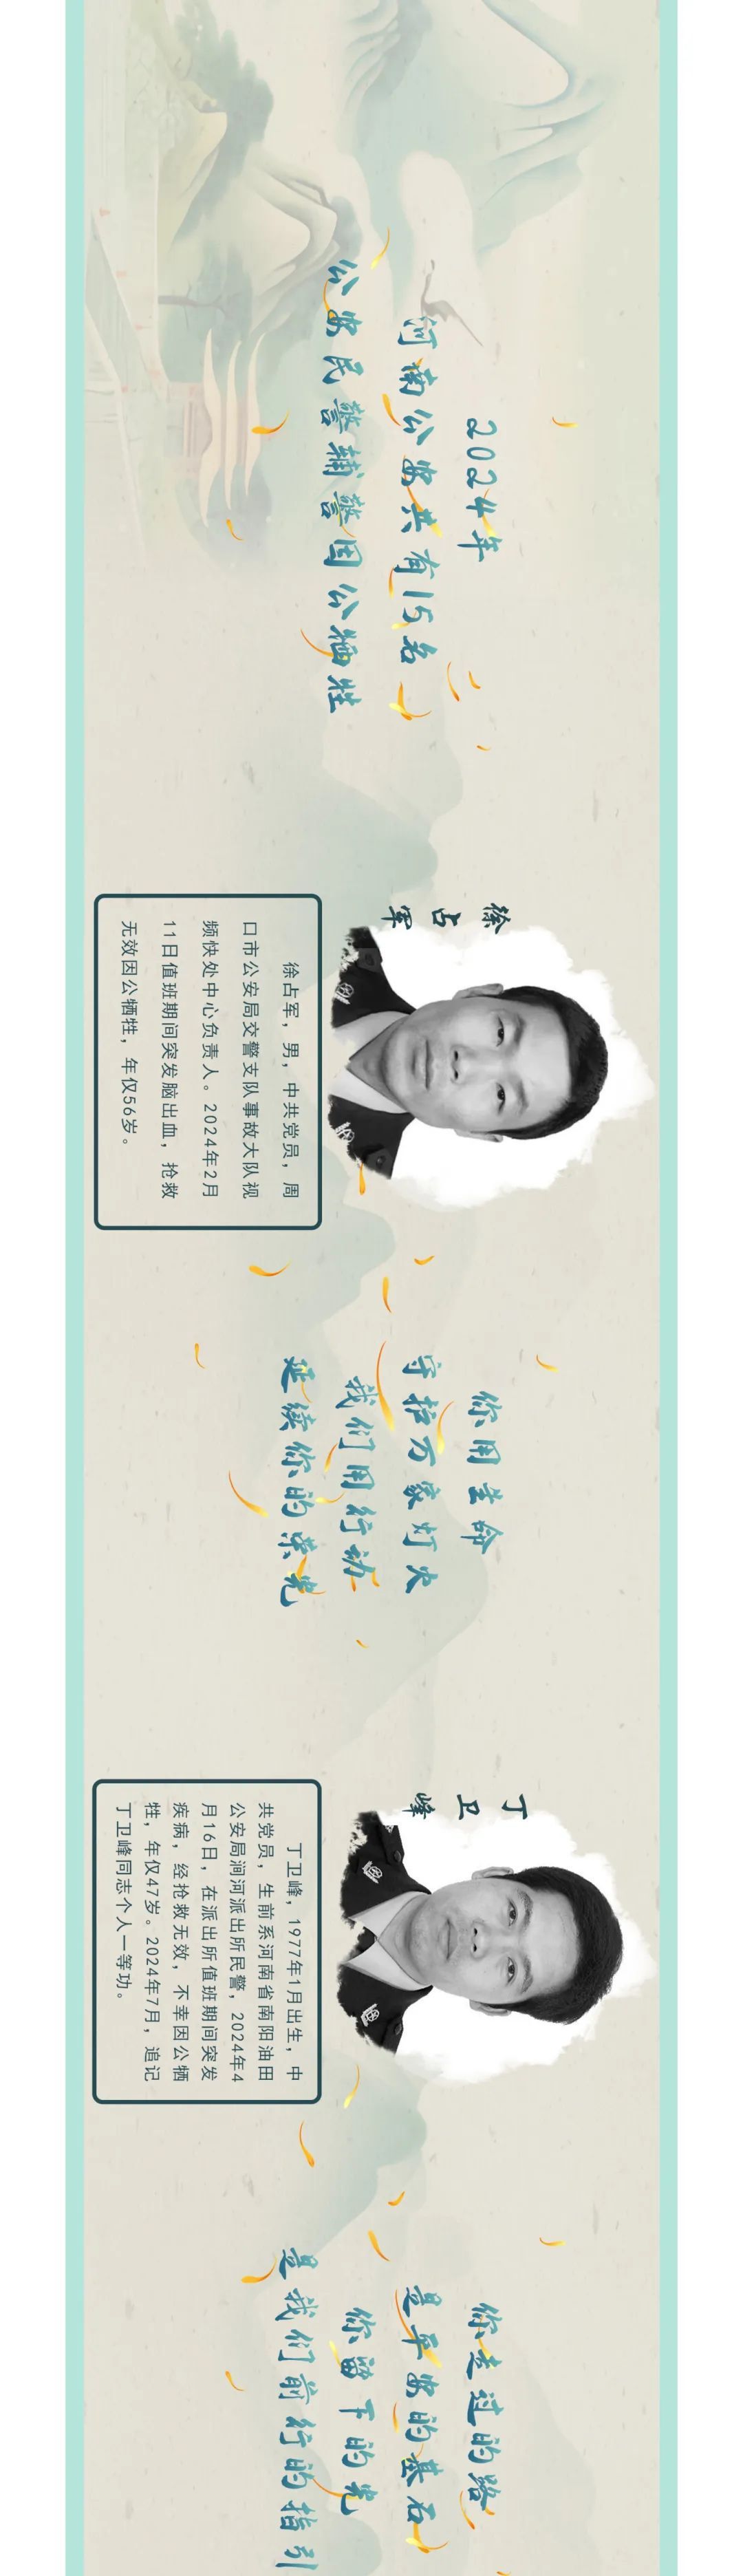 2024年
河南公安共有15名
公安民警辅警因公牺牲
徐占军
徐占军，男，中共党员，周
口市公安局交警支队事故大队视
频快处中心负责人。2024年2月
11日值班期间突发脑出血，抢救
无效因公牺牲，年仅56岁。
你用生命
守护万家灯火
我们用行动
延续你的荣光
丁卫峰
丁卫峰，1977年1月出生，中
共党员，生前系河南省南阳油田
公安局涧河派出所民警，2024年4
月16日，在派出所值班期间突发
疾病，经抢救无效，不幸因公牺
牲，年仅47岁。2024年7月，追记
丁卫峰同志个人一等功。
你走过的路
是平安的基石
你留下的光
是我们前行的指引